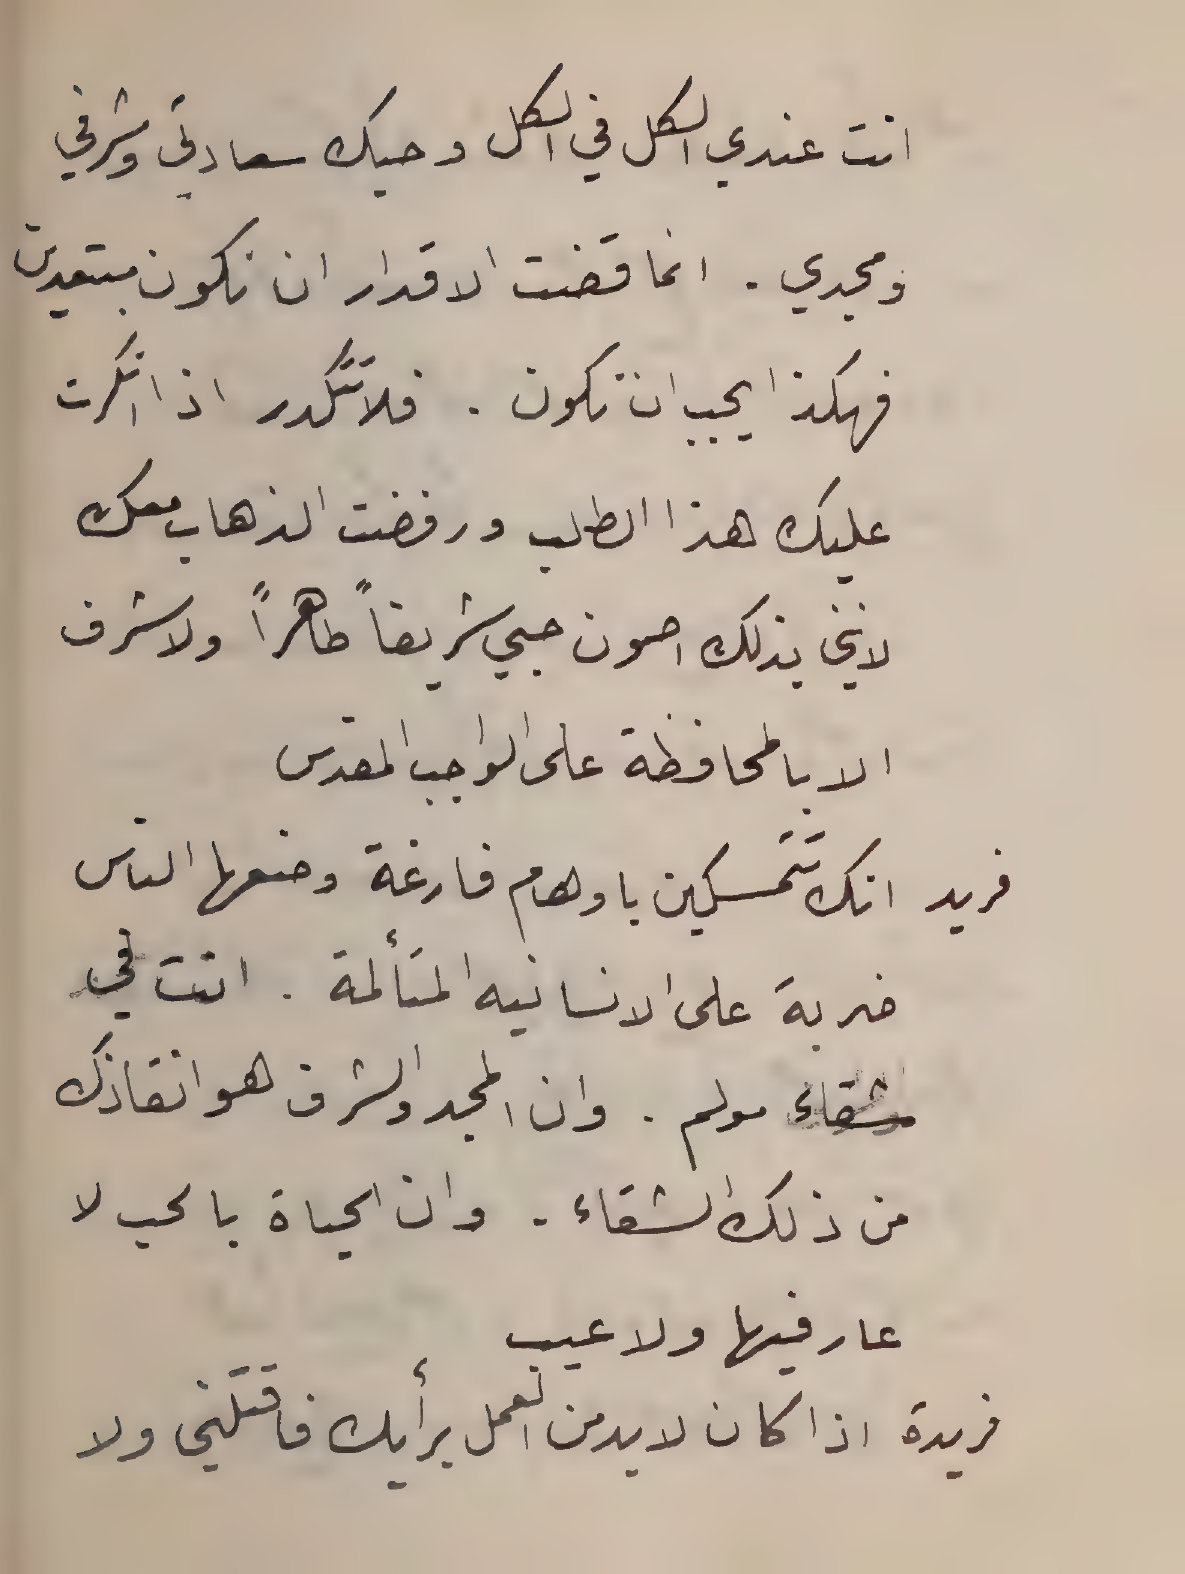 انت عندي الكل في الكل وحبك سعادتي وشرفي
ومجدي . انما قضت الاقدار ان نكون مبتعدين
فهكذا يجب ان نكون . فلا تتكدر اذا انكرت
عليك هذا الطلب ورفضت الذهاب معك
لانني بذلك اصون حبي شريفاً طاهراً ولا شرف
الا بالمحافظة على الواجب المقدس
فريد انك تتمسكين باوهام فارغة وضعها الناس
ضربة على الانسانيه المتألمة . انت في
شقاء مولم . وان المجد والشرف هو انقاذك
من ذلك الشقاء . وان الحياة بالحب لا
عار فيها ولا عيب
فريدة اذا كان لا بد من العمل برأيك فاقتلني ولا